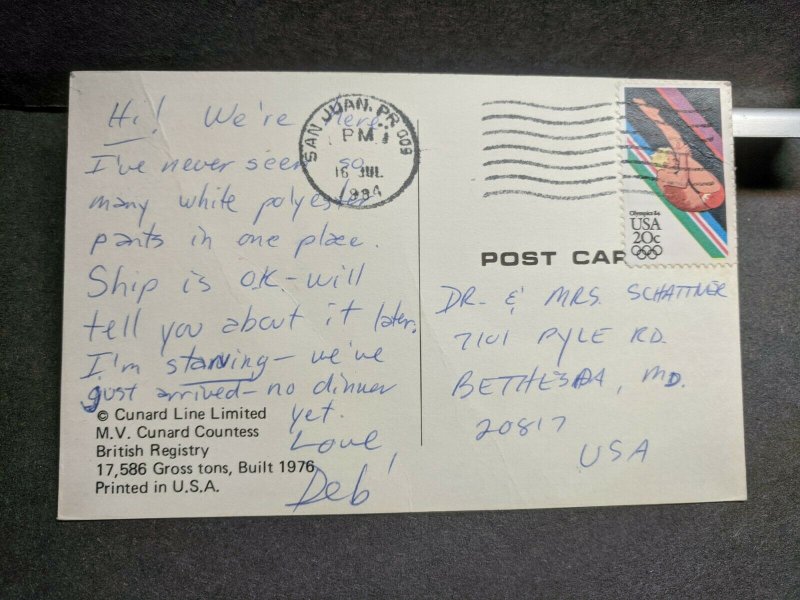 Hi! We're here.
I've never seen so
many white polyester
pants in one place.
Ship is OK - will
tell you about it later.
I'm starving - we've
just arrived - no dinner
yet.
Love,
Deb
© Cunard Line Limited
M.V. Cunard Countess
British Registry
17,586 Gross tons, Built 1976
Printed in U.S.A.
SAN JUAN, PR 009
PM
16 JUL
1984
Olympics 84
USA
20c
POST CAR
DR. & MRS. SCHATTNER
7101 PYLE RD.
BETHESDA, MD.
20817
USA